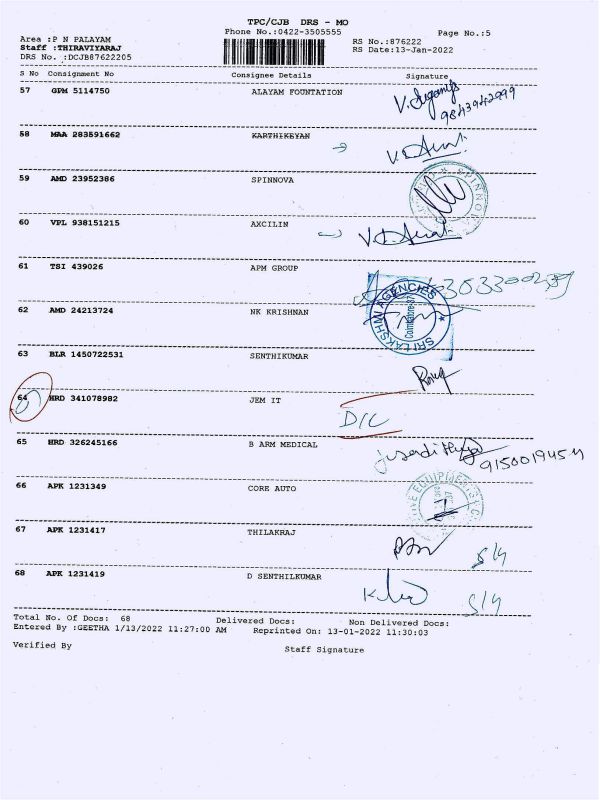 TPC/CJB DRS - MO
Phone No.:0422-3505555
Page No.:5
Area :P N PALAYAM
Staff :THIRAVIYARAJ
DRS No. :DCJB87622205
RS No.:876222
RS Date:13-Jan-2022
S No Consignment No Consignee Details Signature
57 GPM 5114750 ALAYAM FOUNTATION
58 MAA 283591662 KARTHIKEYAN
59 AMD 23952386 SPINNOVA
60 VPL 938151215 AXCILIN
61 TSI 439026 APM GROUP
62 AMD 24213724 NK KRISHNAN
SRI LAKSHMI AGENCIES
Coimbatore-37
63 BLR 1450722531 SENTHIKUMAR
64 HRD 341078982 JEM IT
D/C
65 HRD 326245166 B ARM MEDICAL
66 APK 1231349 CORE AUTO
67 APK 1231417 THILAKRAJ
68 APK 1231419 D SENTHILKUMAR
Total No. Of Docs: 68 Delivered Docs: Non Delivered Docs:
Entered By :GEETHA 1/13/2022 11:27:00 AM Reprinted On: 13-01-2022 11:30:03
Verified By Staff Signature